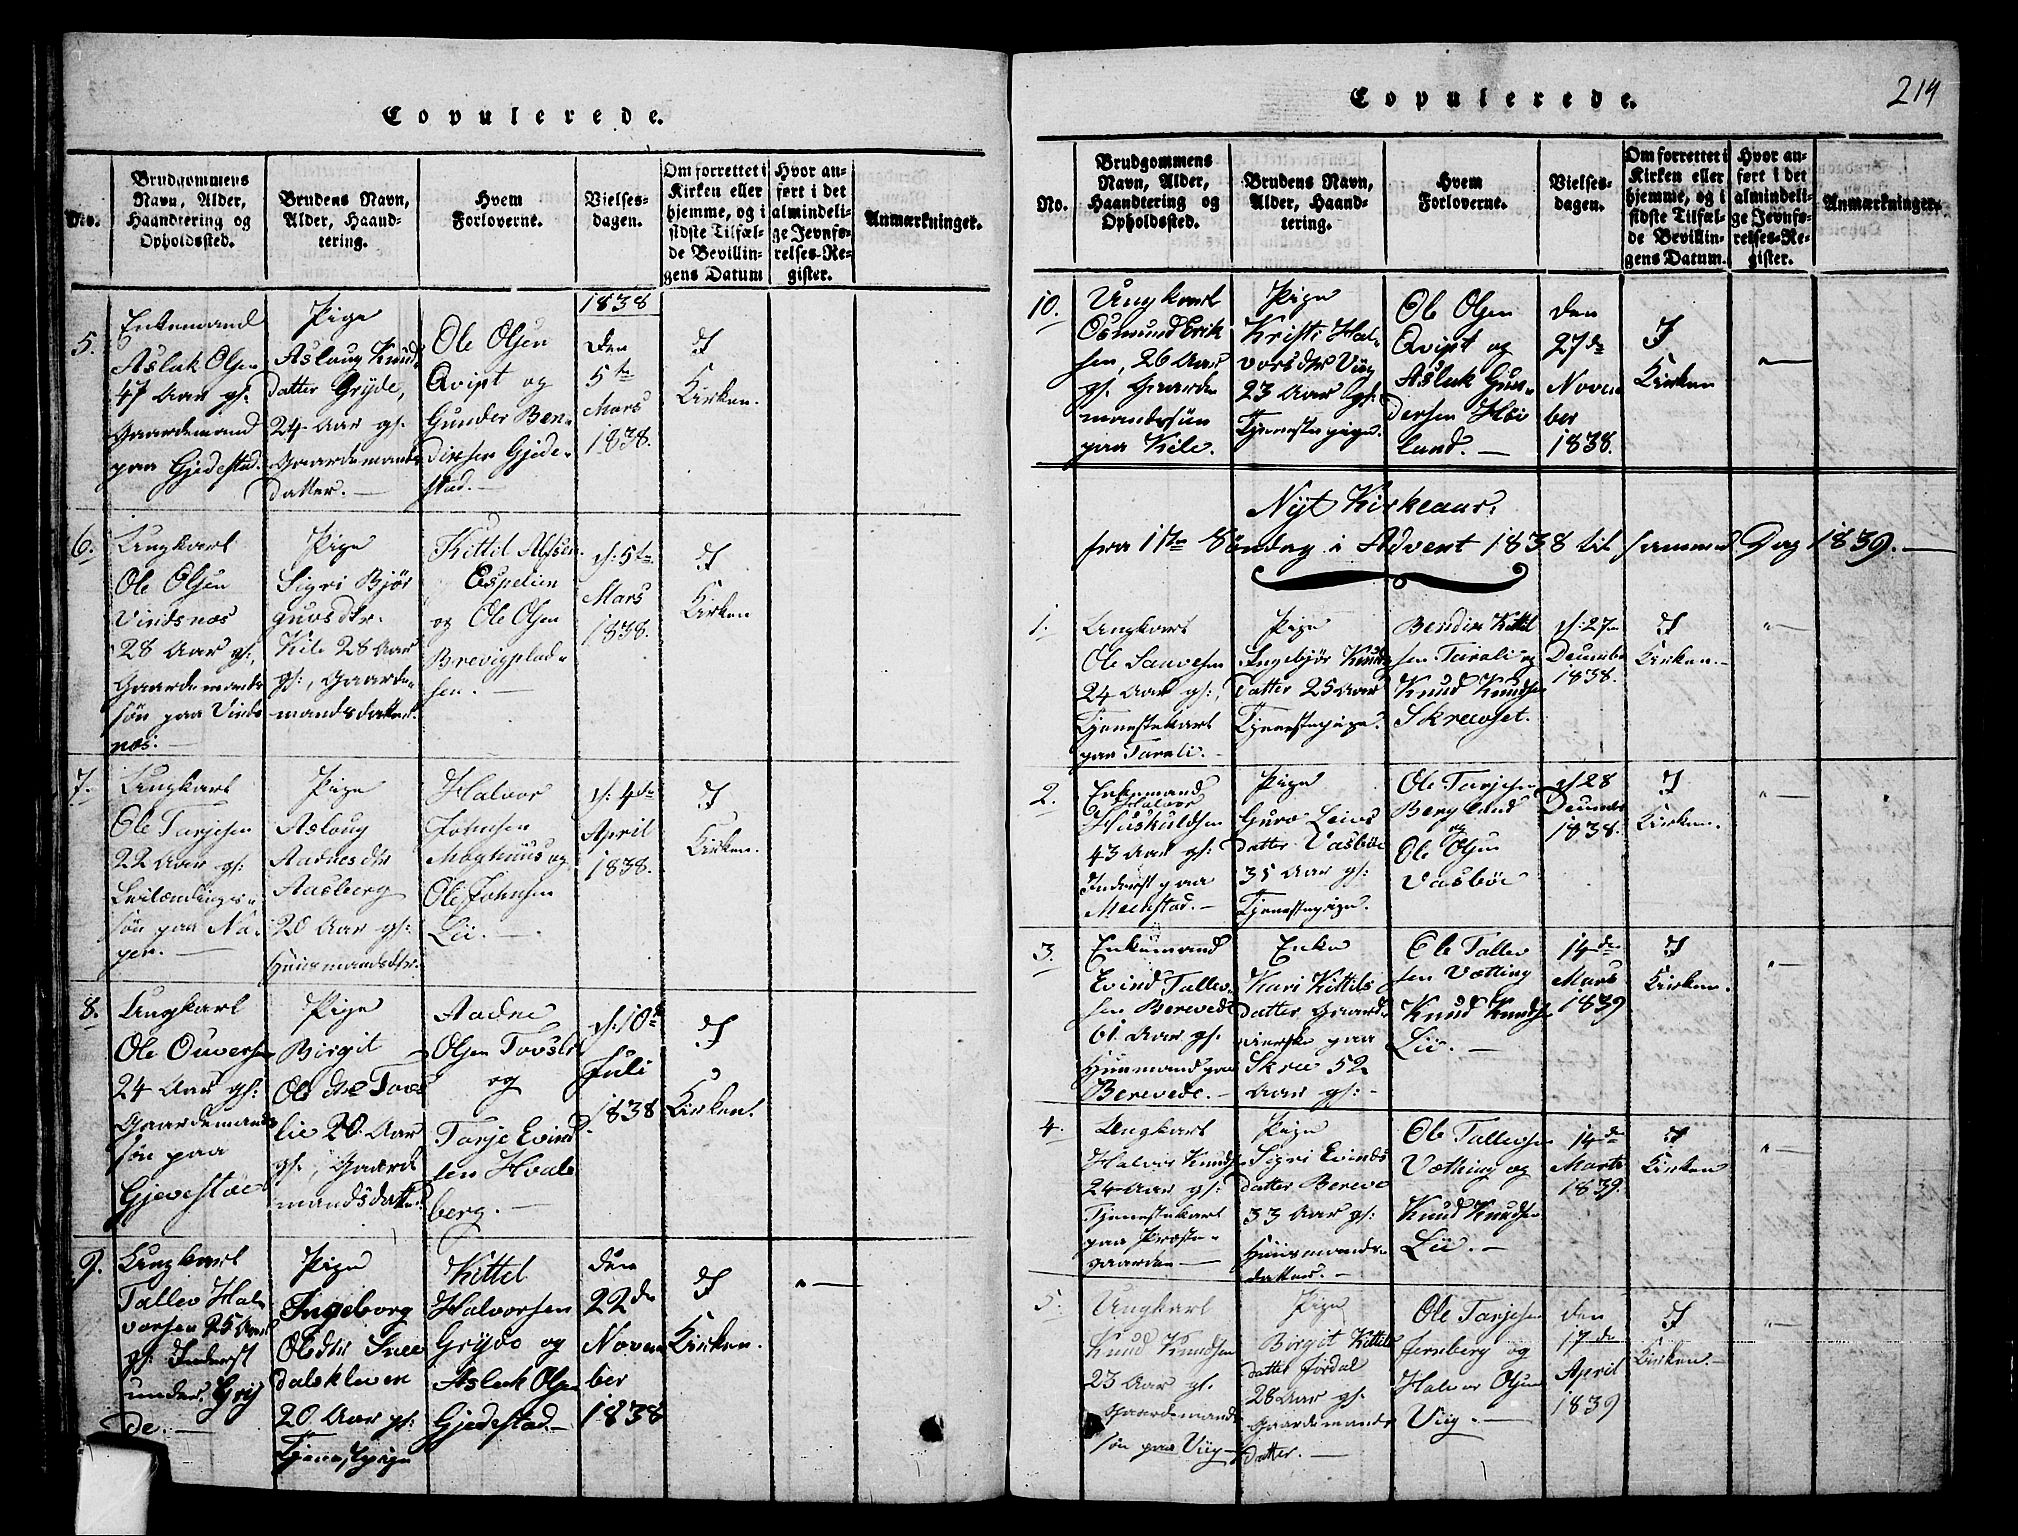 Copulerede.
No.
Brudgommens Navn, Alder, Haandtering og Opholdssted.
Brudens Navn, Alder, Haandtering.
Hvem Forloverne.
Vielsesdagen.
Om forrettet i Kirken eller hjemme, og i sidste Tilfælde Bevillingens Datum
Hvor anført i det almindelige Jevnførelses-Register.
Anmærkninger.
5.
Enkemand
Aslak Olsen
47 Aar gl:
Gaardemand
paa Gjedestad.
Pige
Aslaug Knuds
datter Gryde,
24 Aar gl.
Gaardemands
datter.
Ole Olsen
Qvipt og
Gunder Ben-
dixsen Gjede-
stad.
1838
den
5te
Mars
1838.
I
Kirken.
6.
Ungkarl
Ole Olsen
Vindsnæs
28 Aar gl,
Gaardemands
søn paa Vinds
næs.
Pige
Sigri Bjør
guvsdtr.
Kile 28 Aar
gl:, Gaarde-
mandsdatter.
Kittil Alfsen
Espelien
og Ole Olsen
Brevigplad-
sen.
d: 5te
Mars
1838.
I
Kirken
7.
Ungkarl
Ole Tarjesen
22 Aar gl:
Leilændings-
søn paa Na-
pen.
Pige
Aslaug
Aadnesdtr
Aasberg
20 Aar gl:
Huusmandsdtr.
Halvor
Johnsen
Moghuus og
Ole Johnsen
Lii.
d: 4de
April
1838.
I
Kirken.
8.
Ungkarl
Ole Ouversen
24 Aar gl:
Gaardemands
søn paa
Gjevestøe
Pige
Birgit
Ols dtr Tovs
lie 20 Aar
gl:, Gaarde
mandsdatter.
Aadne
Olsen Tovsli
og
Tarje Evind
sen Hvale
berg.
d: 10de
Juli
1838
I
Kirken.
9.
Ungkarl
Tallev Hal
vorsen 25 Aar
gl: Inderst
under Gry
de.
Pige
Ingeborg
Olsdtr Snee
dalskleven
20 Aar gl:
Tjenestepige
Kittel
Halvorsen
Gryde og
Aslak Olsen
Gjedestad.
den
22de
Novem
ber
1838
I
Kirken.
"
Copulerede.
214
No.
Brudgommens Navn, Alder, Haandtering og Opholdssted.
Brudens Navn, Alder, Haandtering.
Hvem Forloverne.
Vielsesdagen.
Om forrettet i Kirken eller hjemme, og i sidste Tilfælde Bevillingens Datum.
Hvor anført i det almindelige Jevnførelses-Register.
Anmærkninger.
10.
Ungkarl
Osmund Erik
sen, 26 Aar
gl. Gaarde
mandssøn
paa Kile.
Pige
Kristi Hal-
vorsdtr Viig
23 Aar gl:
Tjenestepige.
Ole Olsen
Qvipt og
Aslak Gun-
dersen Høi
lund.
den
27de
Novem
ber
1838.
I
Kirken
"
Nyt Kirkeaar:
fra 1ste Søndag i Advent 1838 til samme Dag 1839.
1.
Ungkarl
Ole Sauvesen
24 Aar gl:,
Tjenestekarl
paa Tarali.
Pige
Ingebjør Knuds
datter 25 Aar
Tjenestepige.
Bendix Kittil
sen Tarali og
Knud Knudsen
Skrevset.
d: 27de
December
1838.
I
Kirken.
"
2.
Enkemand
Halvor
Huskuldsen
43 Aar gl:
Inderst paa
Meenstad.
Pige
Guro Leius
datter Vasbøe
35 Aar gl:
Tjenestepige.
Ole Tarjesen
Bergland
og
Ole Olsen
Vasbøe
d: 28
December
1838.
I
Kirken.
"
3.
Enkemand
Evind Tallev
sen Berevede
61 Aar gl.
Huusmand paa
Berevede.
Enke
Kari Kittils
datter Gaard
paa
Skree 52
Aar gl:
Ole Tallev
sen Vætting
Knud Knudsen
Lii.
14de
Mars
1839
I
Kirken.
"
4.
Ungkarl
Halvor Knudsen
24 Aar gl:
Tjenestekarl
paa Præste-
gaarden
Pige
Sigri Evinds
datter Bereve
33 Aar gl:
Huusmands-
datter.
Ole Tallevsen
Vætting og
Knud Knudsen
Lii.
14de
Marts
1839.
I
Kirken
"
5.
Ungkarl
Knud Knudsen
23 Aar gl.
Gaardemands
søn paa Viig
Pige
Birgit Kittils
datter Jordal
28 Aar gl.
Gaardemands
datter.
Ole Tarjesen
Jernberg og
Halvor Olsen
Viig.
den
17de
April
1839
I
Kirken.
"